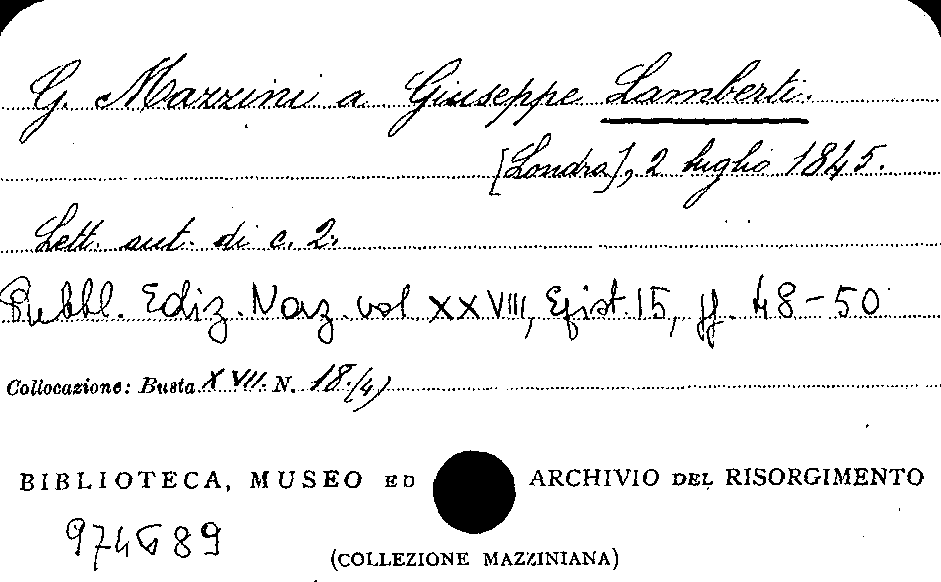 G. Mazzini a Giuseppe Lamberti.
[Londra], 2 luglio 1845.
Lett. aut. di c. 2.
Pubbl. Ediz. Naz. vol XXVIII, Epist. 15, pp. 48-50
Collocazione: Busta XVII. N. 18./4)
BIBLIOTECA, MUSEO ED ARCHIVIO DEL RISORGIMENTO
(COLLEZIONE MAZZINIANA)